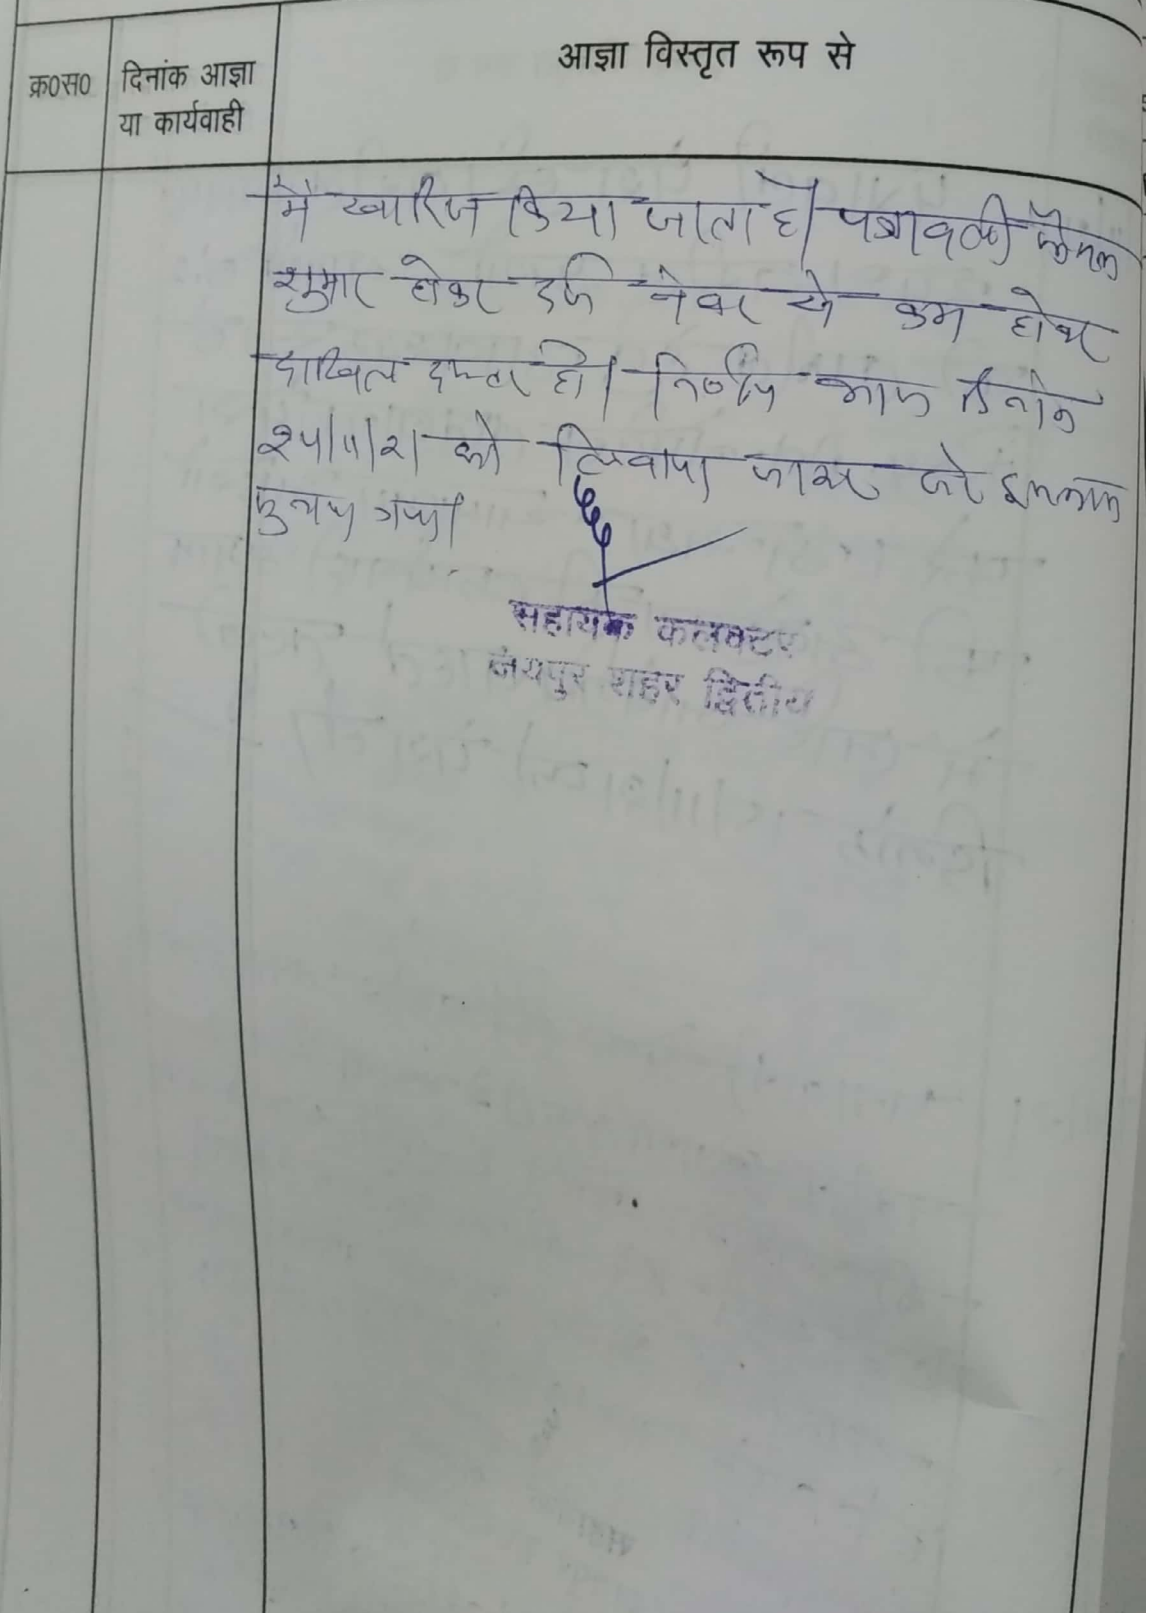 क्र०स०
दिनांक आज्ञा
या कार्यवाही
आज्ञा विस्तृत रूप से
में खारिज किया जाता है। पत्रावली फैसल
शुमार होकर दर्ज नंबर से कम होकर
दाखिल दफ्तर हो। निर्णय आज दिनांक
को लिखवाया जाकर
सुनाया गया।
सहायक कलक्टर
जयपुर शहर द्वितीय